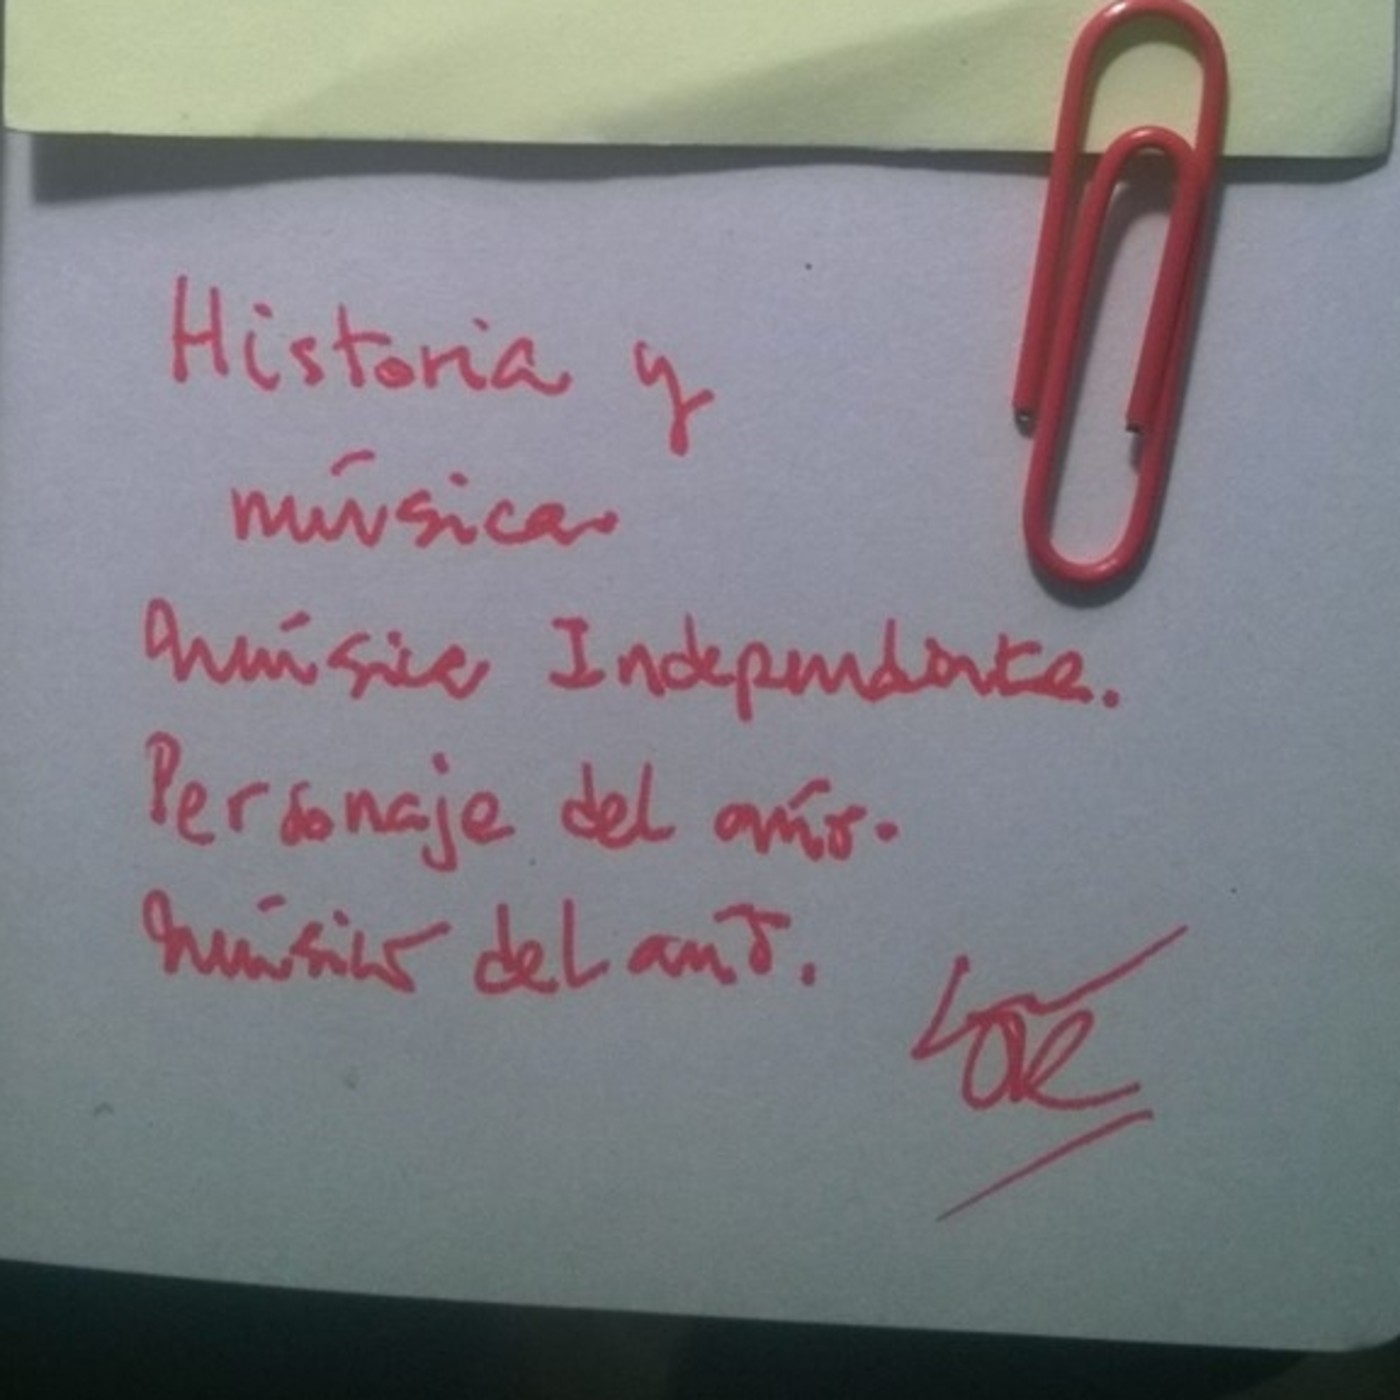 Historia y
música
Música Independiente.
Personaje del año.
Músico del año.